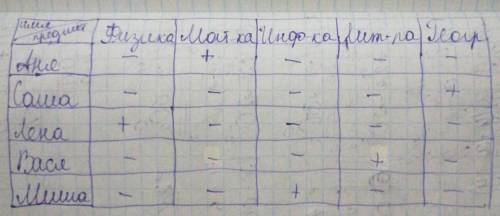 имя предмет Физика Мат-ка Инфо-ка Лит-ра Геогр
Аня − + − − −
Саша − − − − +
Лена + − − − −
Вася − − − + −
Миша − − + − −